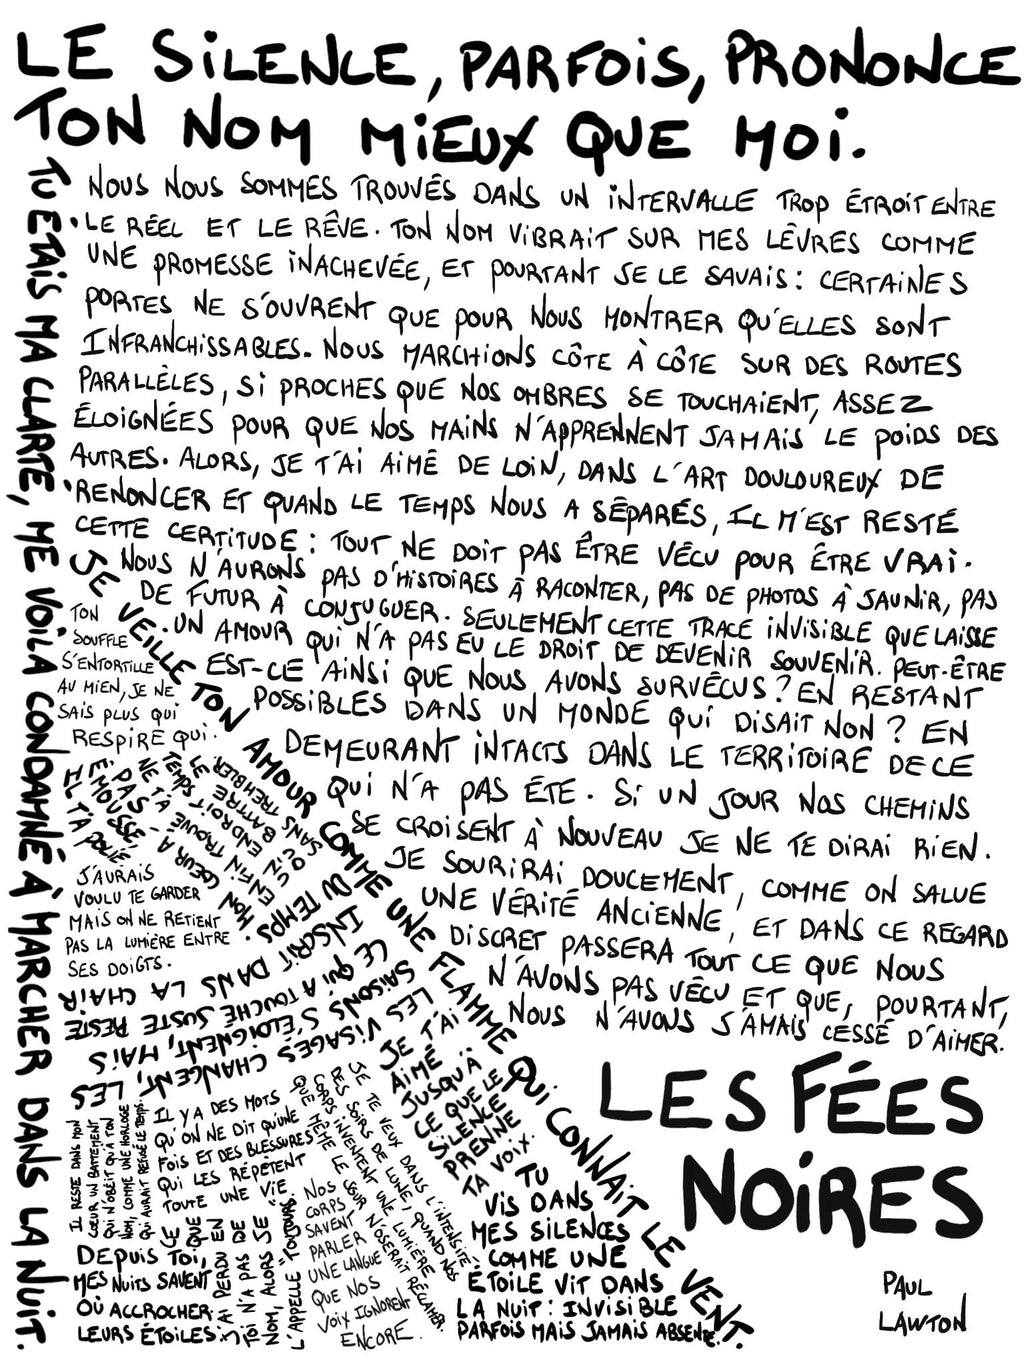 LE SILENCE, PARFOIS, PRONONCE
TON NOM MIEUX QUE MOI.
TU ETAIS MA CLARTE, ME VOILÀ CONDAMNÉ À MARCHER DANS LA NUIT.
NOUS NOUS SOMMES TROUVÉS DANS UN INTERVALLE TROP ÉTROIT ENTRE
LE RÉEL ET LE RÊVE. TON NOM VIBRAIT SUR MES LÈVRES COMME
UNE PROMESSE INACHEVÉE, ET POURTANT JE LE SAVAIS : CERTAINES
PORTES NE S'OUVRENT QUE POUR NOUS MONTRER QU'ELLES SONT
INFRANCHISSABLES. NOUS MARCHIONS CÔTE À CÔTE SUR DES ROUTES
PARALLÈLES, SI PROCHES QUE NOS OMBRES SE TOUCHAIENT, ASSEZ
ÉLOIGNÉES POUR QUE NOS MAINS N'APPRENNENT JAMAIS LE POIDS DES
AUTRES. ALORS, JE T'AI AIMÉ DE LOIN, DANS L'ART DOULOUREUX DE
RENONCER ET QUAND LE TEMPS NOUS A SÉPARÉS, IL M'EST RESTÉ
CETTE CERTITUDE : TOUT NE DOIT PAS ÊTRE VÉCU POUR ÊTRE VRAI.
NOUS N'AURONS PAS D'HISTOIRES À RACONTER, PAS DE PHOTOS À JAUNIR, PAS
DE FUTUR À CONJUGUER. SEULEMENT CETTE TRACE INVISIBLE QUE LAISSE
UN AMOUR QUI N'A PAS EU LE DROIT DE DEVENIR SOUVENIR. PEUT-ÊTRE
EST-CE AINSI QUE NOUS AVONS SURVÉCUS ? EN RESTANT
POSSIBLES DANS UN MONDE QUI DISAIT NON ? EN
DEMEURANT INTACTS DANS LE TERRITOIRE DE CE
QUI N'A PAS ÉTÉ. SI UN JOUR NOS CHEMINS
SE CROISENT À NOUVEAU JE NE TE DIRAI RIEN.
JE SOURIRAI DOUCEMENT, COMME ON SALUE
UNE VÉRITÉ ANCIENNE, ET DANS CE REGARD
DISCRET PASSERA TOUT CE QUE NOUS
N'AVONS PAS VÉCU ET QUE, POURTANT,
NOUS N'AVONS JAMAIS CESSÉ D'AIMER.
JE VEILLE TON AMOUR COMME UNE FLAMME QUI CONNAÎT LE VENT.
TON
SOUFFLE
S'ENTORTILLE
AU MIEN, JE NE
SAIS PLUS QUI
RESPIRE QUI.
LE TEMPS
NE T'A PAS
ÉMOUSSÉ,
IL T'A POLIE
MON CŒUR A
ENFIN TROUVÉ
UN ENDROIT
OÙ BATTRE
SANS TREMBLER.
J'AURAIS
VOULU TE GARDER
MAIS ON NE RETIENT
PAS LA LUMIÈRE ENTRE
SES DOIGTS.
LES VISAGES CHANGENT, LES
SAISONS S'ÉLOIGNENT, MAIS
CE QUI A TOUCHÉ JUSTE RESTE
INSCRIT DANS LA CHAIR
DU TEMPS.
IL RESTE DANS MON
CŒUR UN BATTEMENT
QUI N'OBÉIT QU'À TON
NOM, COMME UNE HORLOGE
QUI AURAIT REFUSÉ LE TEMPS.
IL Y A DES MOTS
QU'ON NE DIT QU'UNE
FOIS ET DES BLESSURES
QUI LES RÉPÈTENT
TOUTE UNE VIE
DEPUIS TOI,
MES NUITS SAVENT
OÙ ACCROCHER
LEURS ÉTOILES.
CE QUE
J'AI PERDU EN
TOI N'A PAS DE
NOM, ALORS JE
L'APPELLE "TOUJOURS".
NOS
CORPS
SAVENT
PARLER
UNE LANGUE
QUE NOS
VOIX IGNORENT
ENCORE.
JE TE VEUX DANS L'INTENSITÉ
DES SOIRS DE LUNE, QUAND NOS
CORPS INVENTENT UNE LUMIÈRE
QUE MÊME LE JOUR N'OSERAIT RÉCLAMER.
JE T'AI
AIMÉ
JUSQU'À
CE QUE LE
SILENCE
PRENNE
TA VOIX.
TU
VIS DANS
MES SILENCES
COMME UNE
ÉTOILE VIT DANS
LA NUIT : INVISIBLE
PARFOIS MAIS JAMAIS ABSENTE.
LES FÉES
NOIRES
PAUL
LAWTON